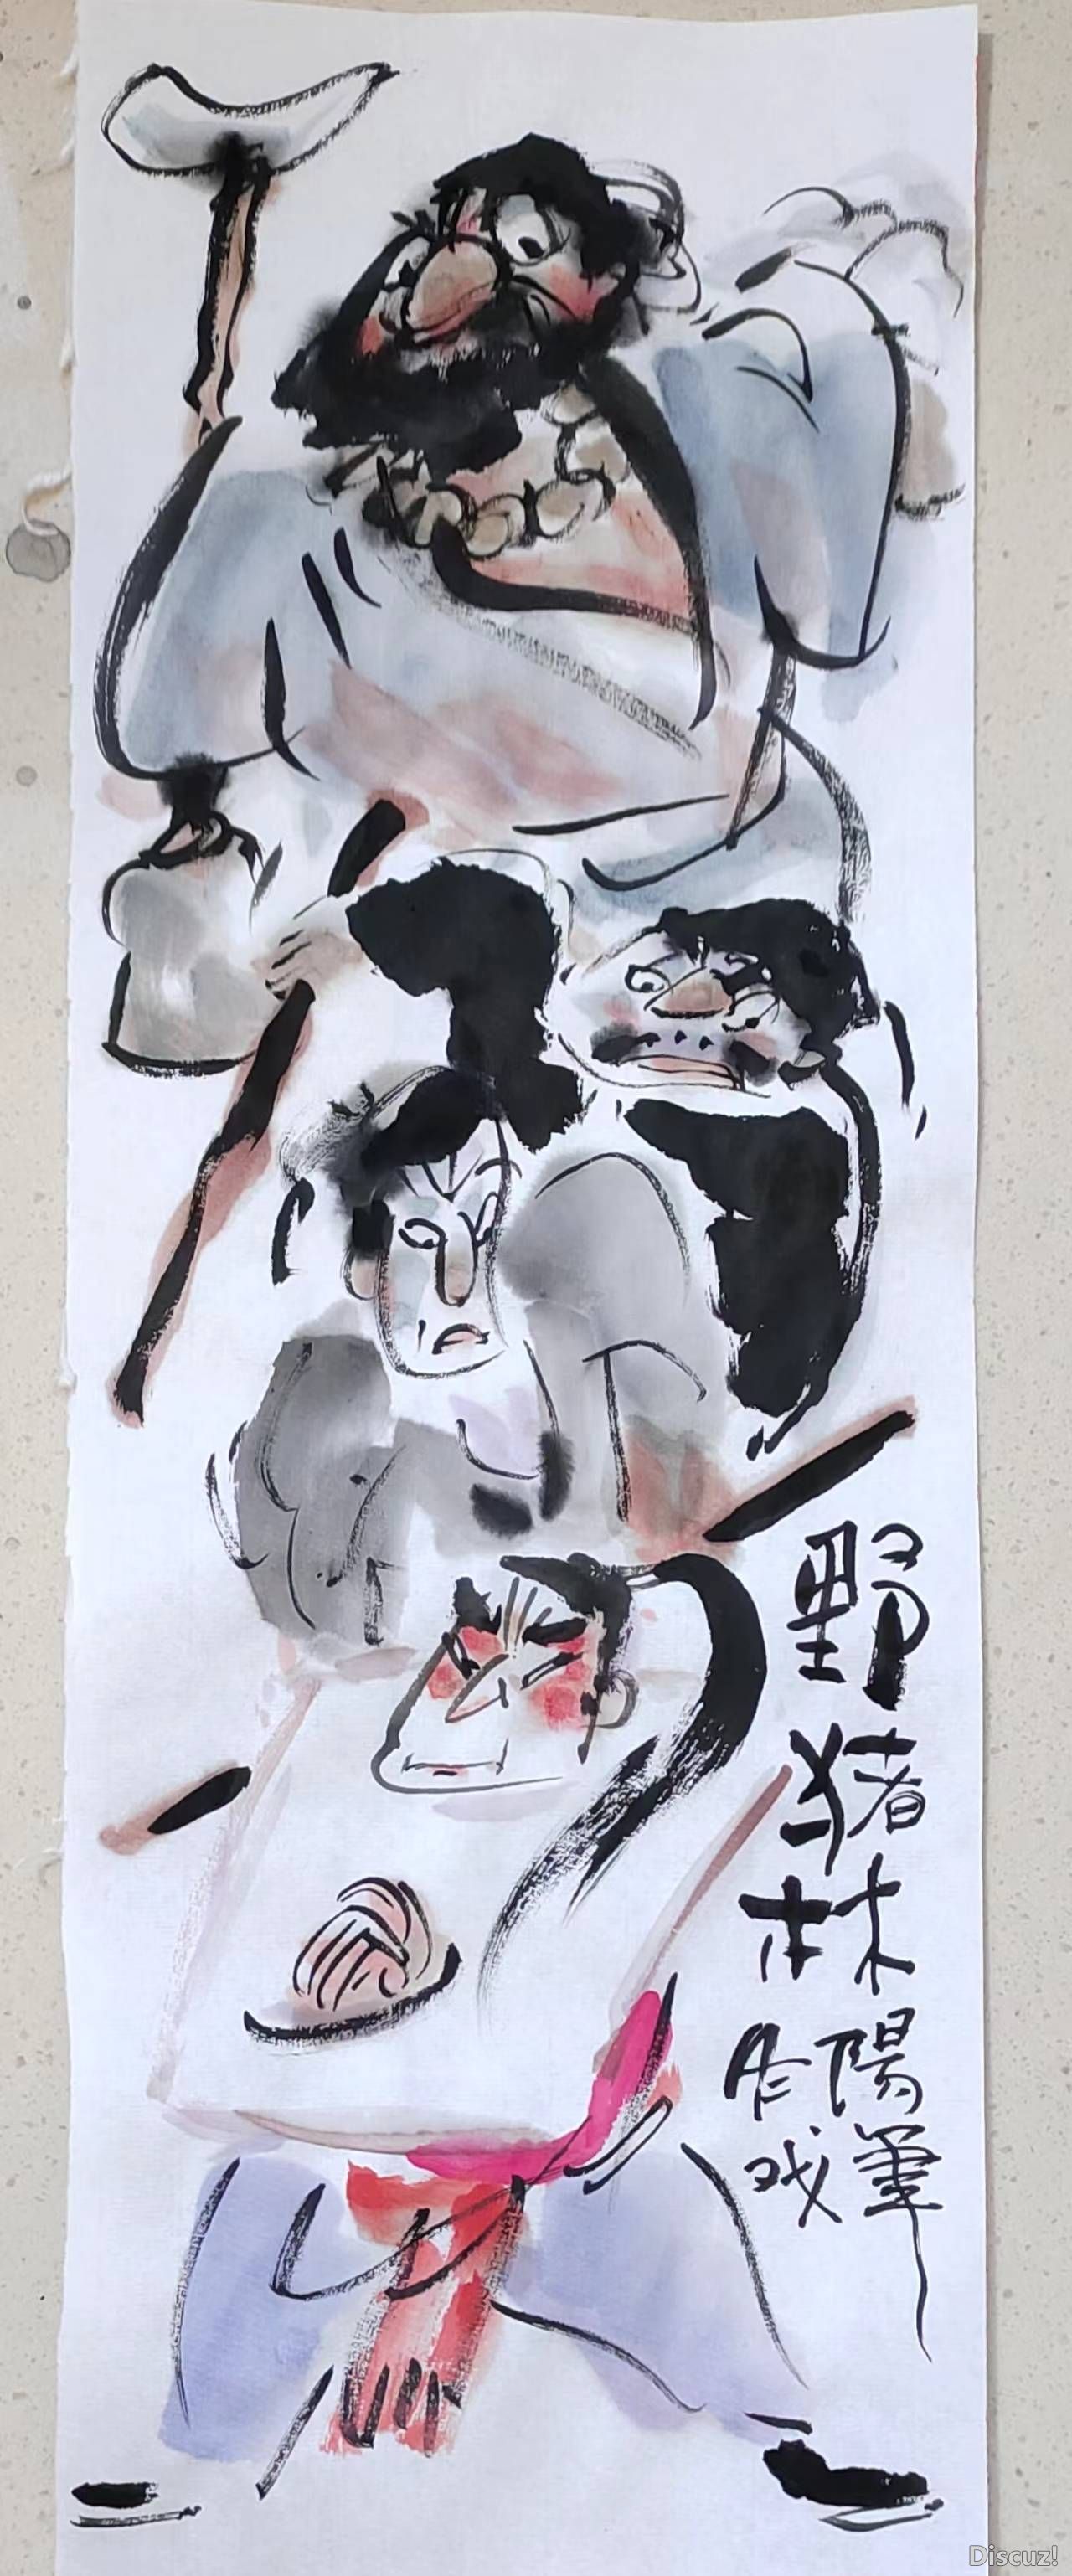 野猪林
陽筆
作戏
Discuz!